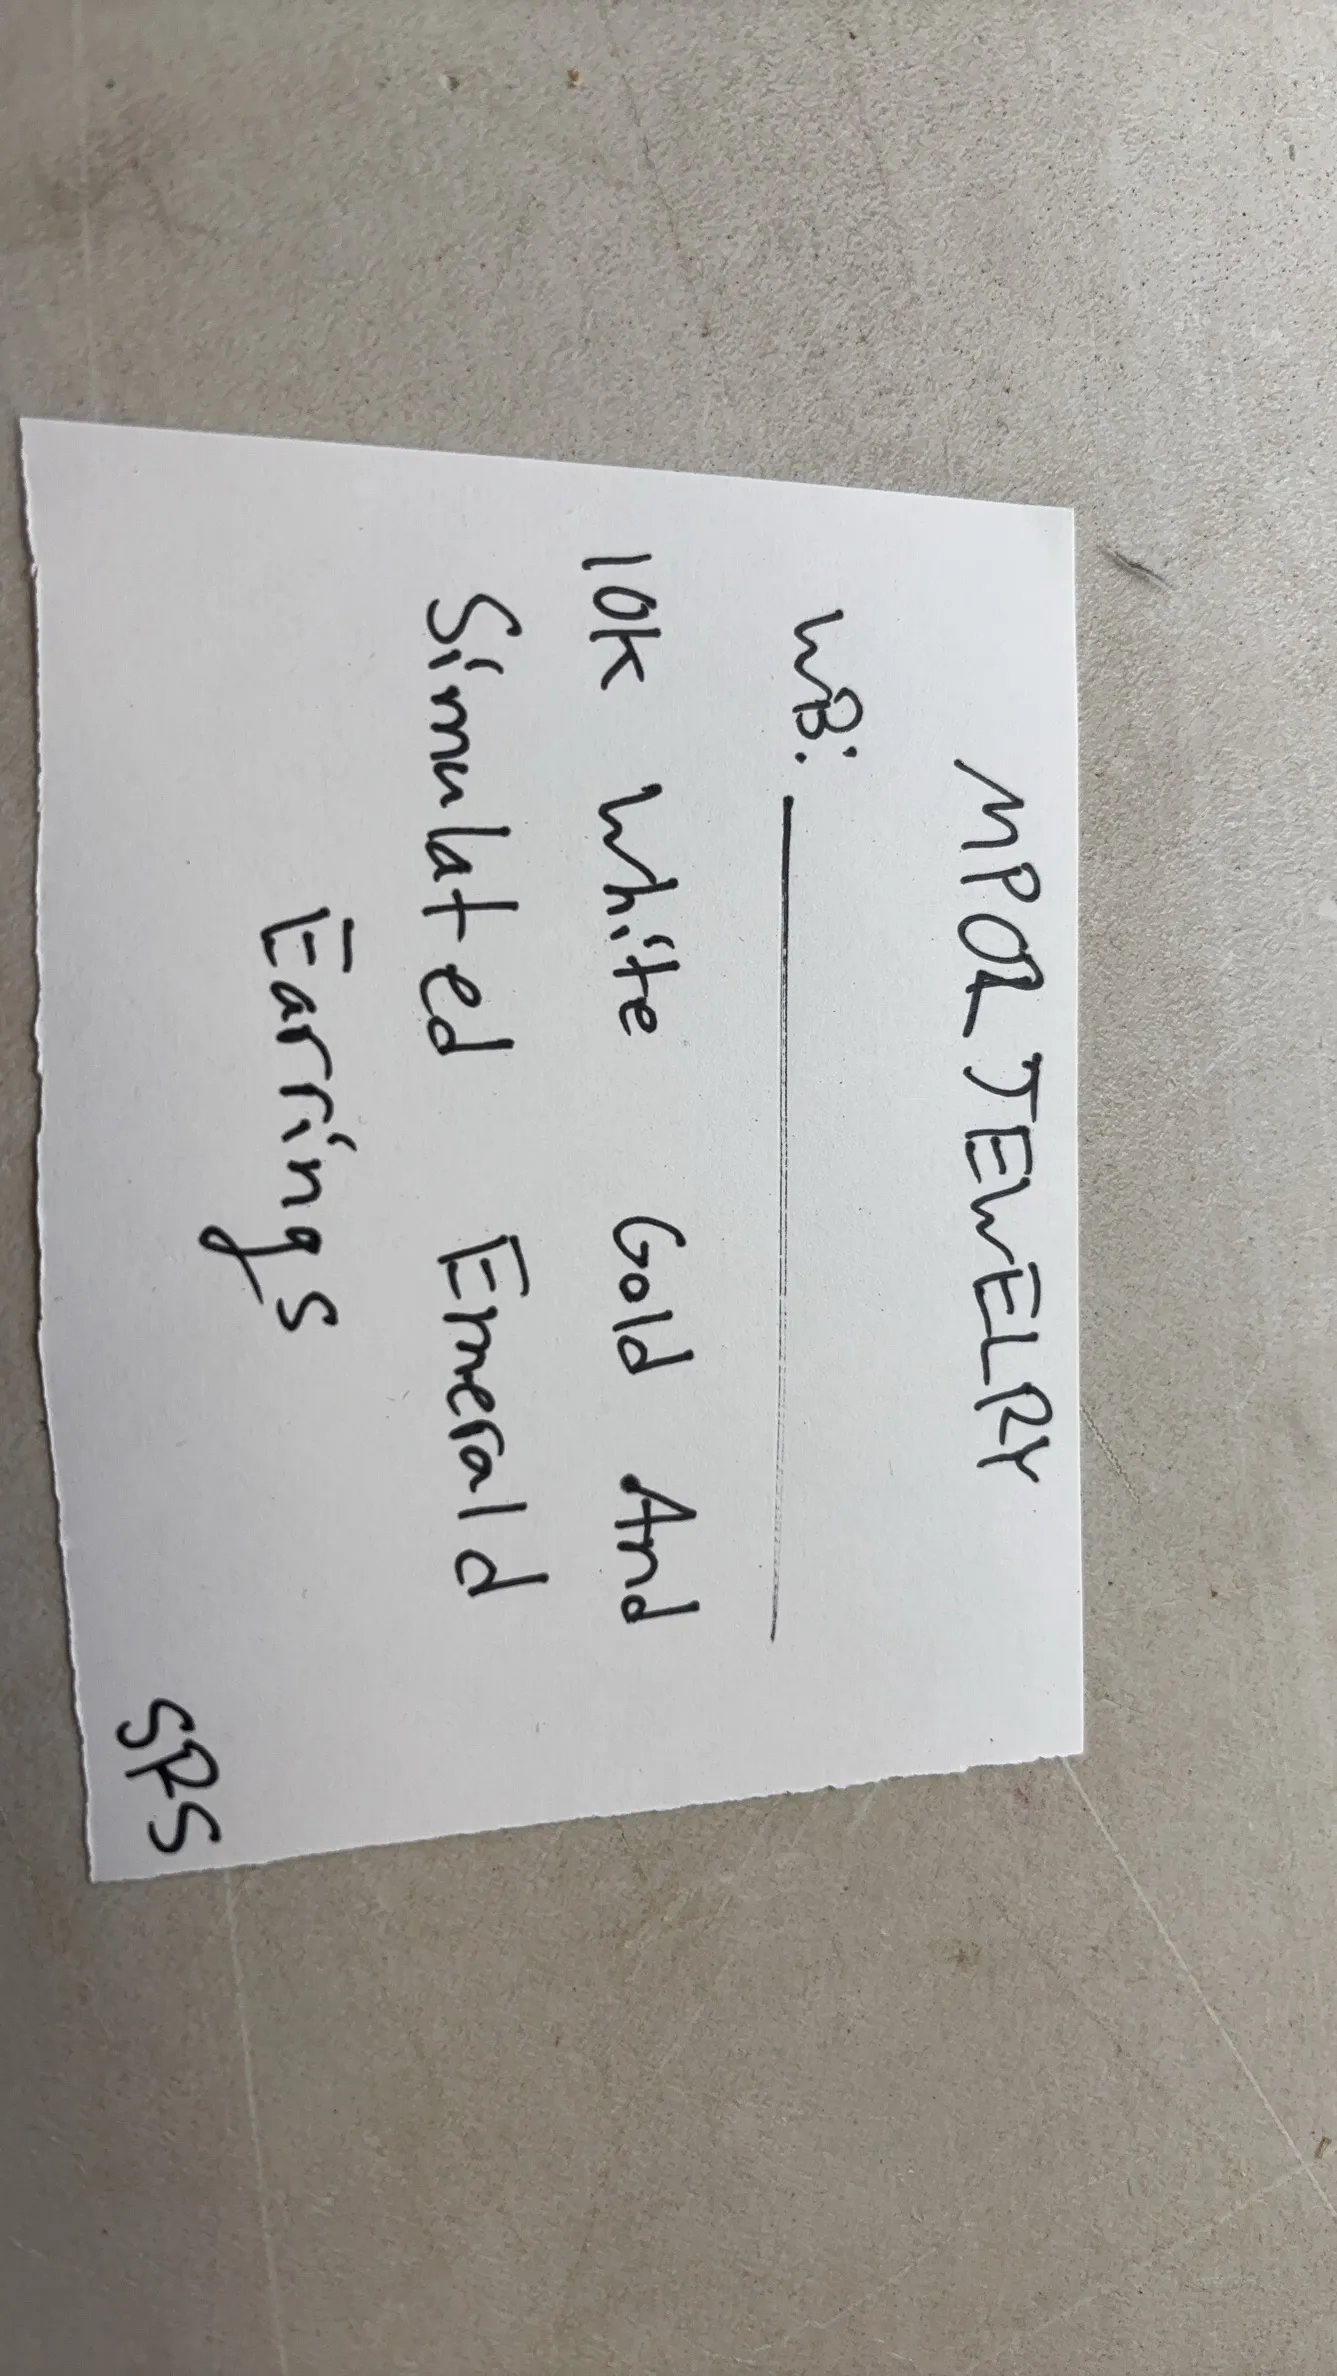 MPOR JEWELRY
WB:
10K White Gold And
Simulated Emerald
Earrings
SRS